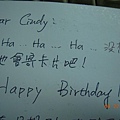 Dear Cindy:
Ha … Ha … Ha … 沒
也會寫卡片吧!
Happy Birthday!